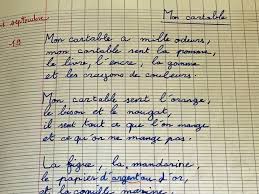 Mon cartable
septembre
Mon cartable a mille odeurs,
mon cartable sent la pomme,
le livre, l'encre, la gomme
et les crayons de couleurs.
Mon cartable sent l'orange,
le bison et le nougat,
il sent tout ce que l'on mange
et ce qu'on ne mange pas.
La figue, la mandarine,
le papier d'argent ou d'or,
et la coquille marine,